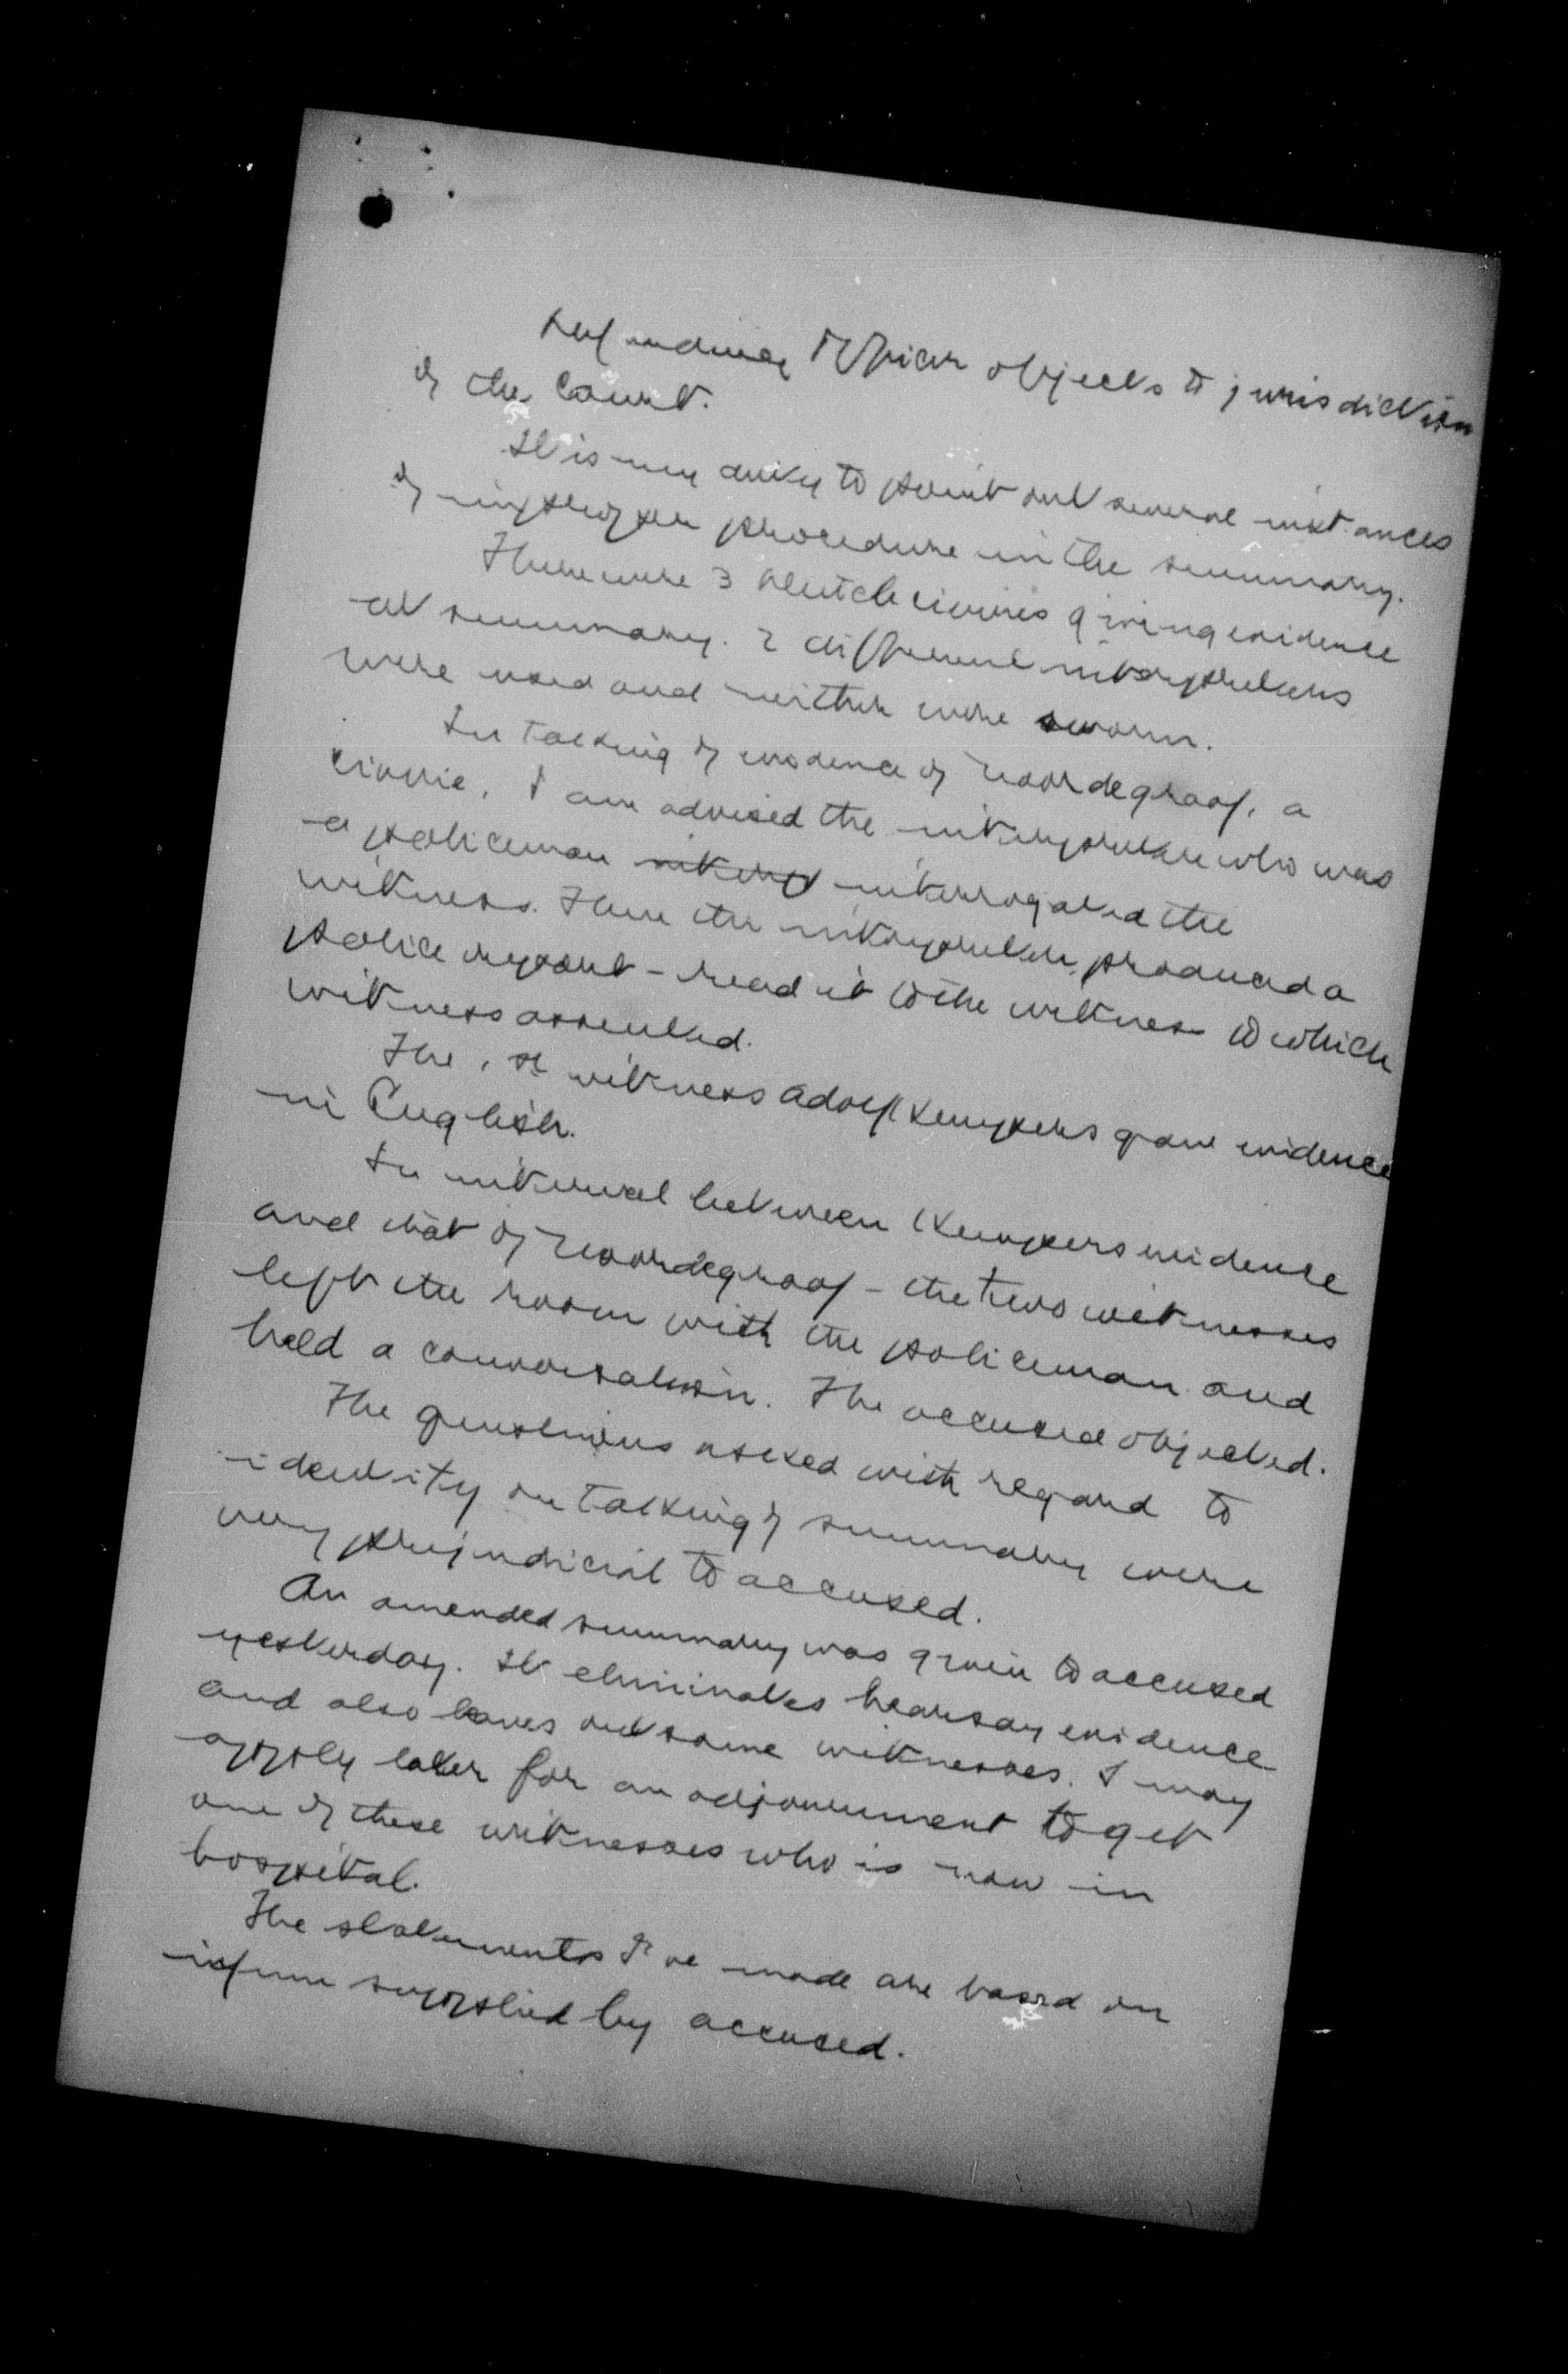 Defending Officer objects to jurisdiction
of the Court.
It is my duty to point out several instances
of improper procedure in the summary.
There were 3 Dutch civvies giving evidence
at summary. 2 different interpreters
were used and neither were sworn.
In taking of evidence of Noordegraaf, a
civvie, I am advised the interpreter who was
a policeman interp interrogated the
witness. Then the interpreter produced a
police report - read it to the witness to which
witness assented.
The 1st witness Adolf Kempers gave evidence
in English.
In interval between Kempers evidence
and that of Noordegraaf - the two witnesses
left the room with the policeman and
held a conversation. The accused objected.
The questions asked with regard to
identity on taking of summary were
very prejudicial to accused.
An amended summary was given to accused
yesterday. It eliminates hearsay evidence
and also leaves out some witnesses. I may
apply later for an adjournment to get
one of these witnesses who is now in
hospital.
The statements I've made are based on
infmn supplied by accused.